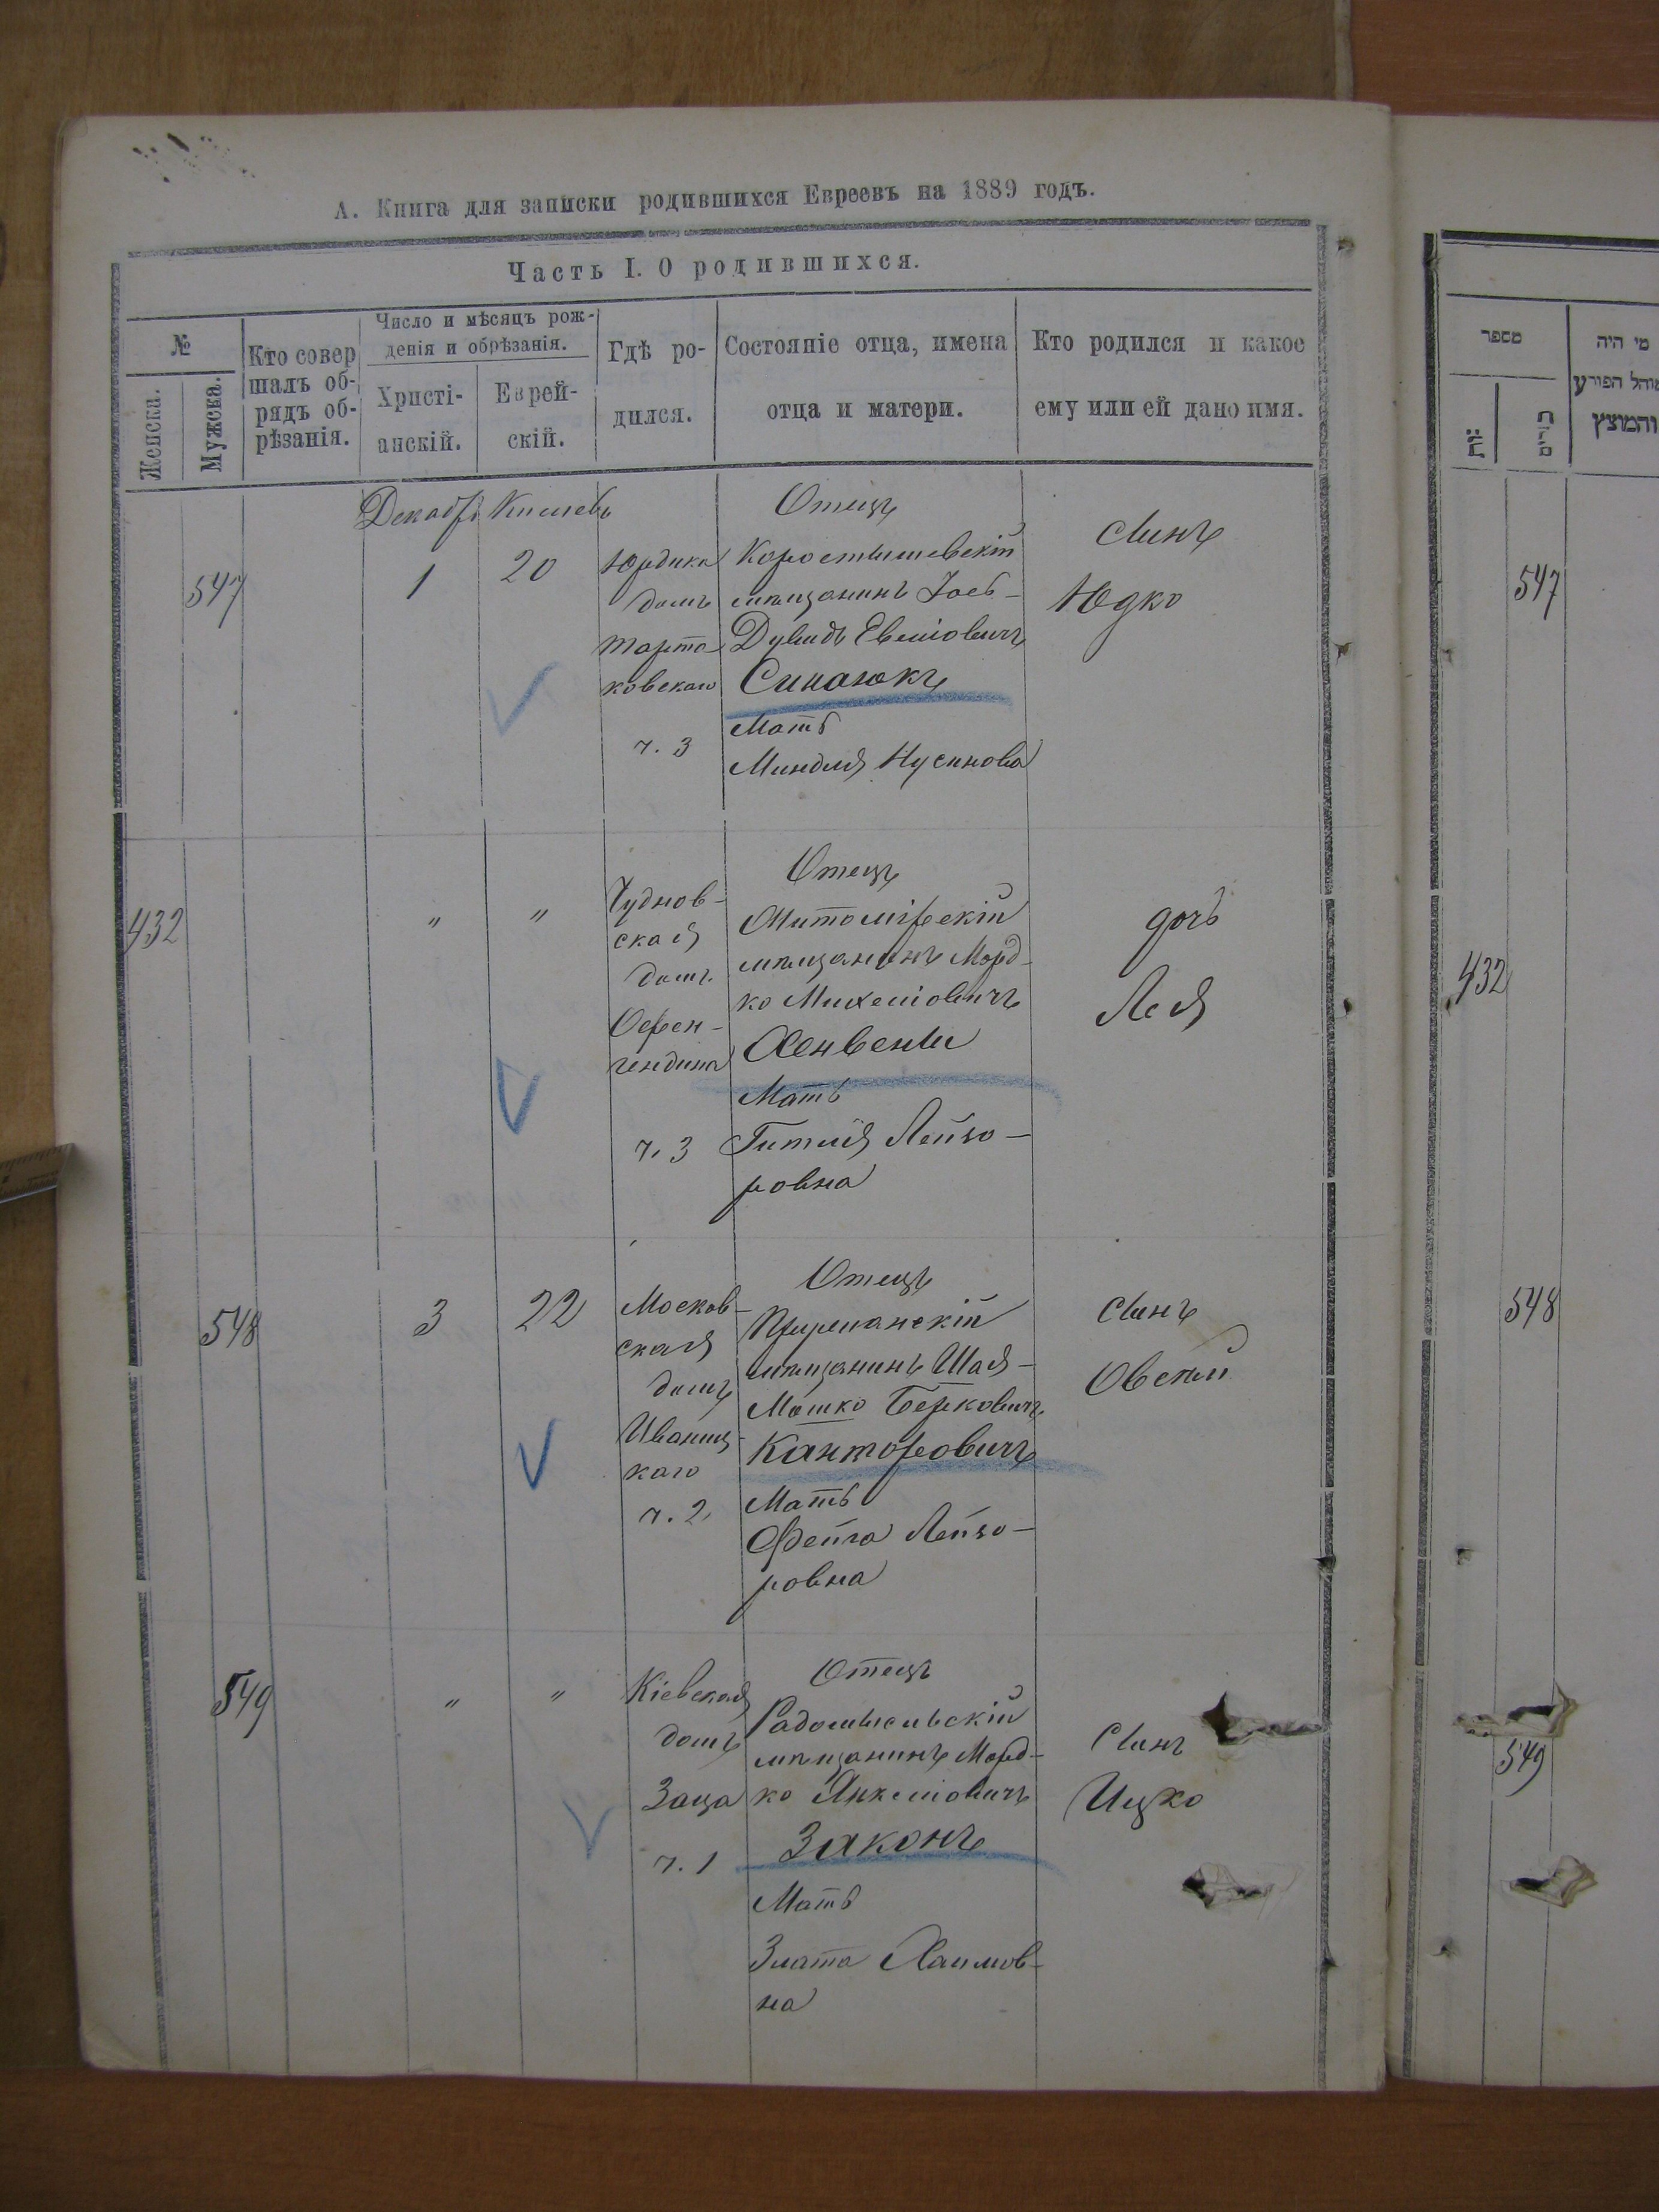 А. Книга для записки родившихся Евреевъ на 1889 годъ.
Часть I. О родившихся.
№
Женска.
Мужска.
Кто совер
шалъ об-
рядъ об-
рѣзанія.
Число и мѣсяцъ рож-
денія и обрѣзанія.
Христі-
анскій.
Еврей-
скій.
Гдѣ ро-
дился.
Состояніе отца, имена
отца и матери.
Кто родился и какое
ему или ей дано имя.
Декабр Кислевъ
547
1
20
домъ
ковскаго
ч. 3
Отецъ
Коростышевскій
мѣщанинъ Іосъ-
Дувидъ
Синаюкъ
Мать
Миндля Нусинова
Сынъ
Юдко
432
"
"
Чуднов-
ская
домъ
ч. 3
Отецъ
Житомірскій
мѣщанинъ Морд-
ко Михелiовичъ
Мать
Гитля Лейзо-
ровна
дочь
Лея
548
3
22
Москов-
ская
домъ
Иваниц-
каго
ч. 2
Отецъ
мѣщанинъ Шая-
Мошко Берковичъ
Канторовичъ
Мать
Фейга Лейзо-
ровна
Сынъ
Овсей
549
"
"
Кіевская
домъ
Заца
ч. 1
Отецъ
Радомысльскій
мѣщанинъ Морд-
ко Янкеліовичъ
Законъ
Мать
Злата Хаимов-
на
Сынъ
Ицко
מספר
מי היה
והמוצץ
547
432
548
549